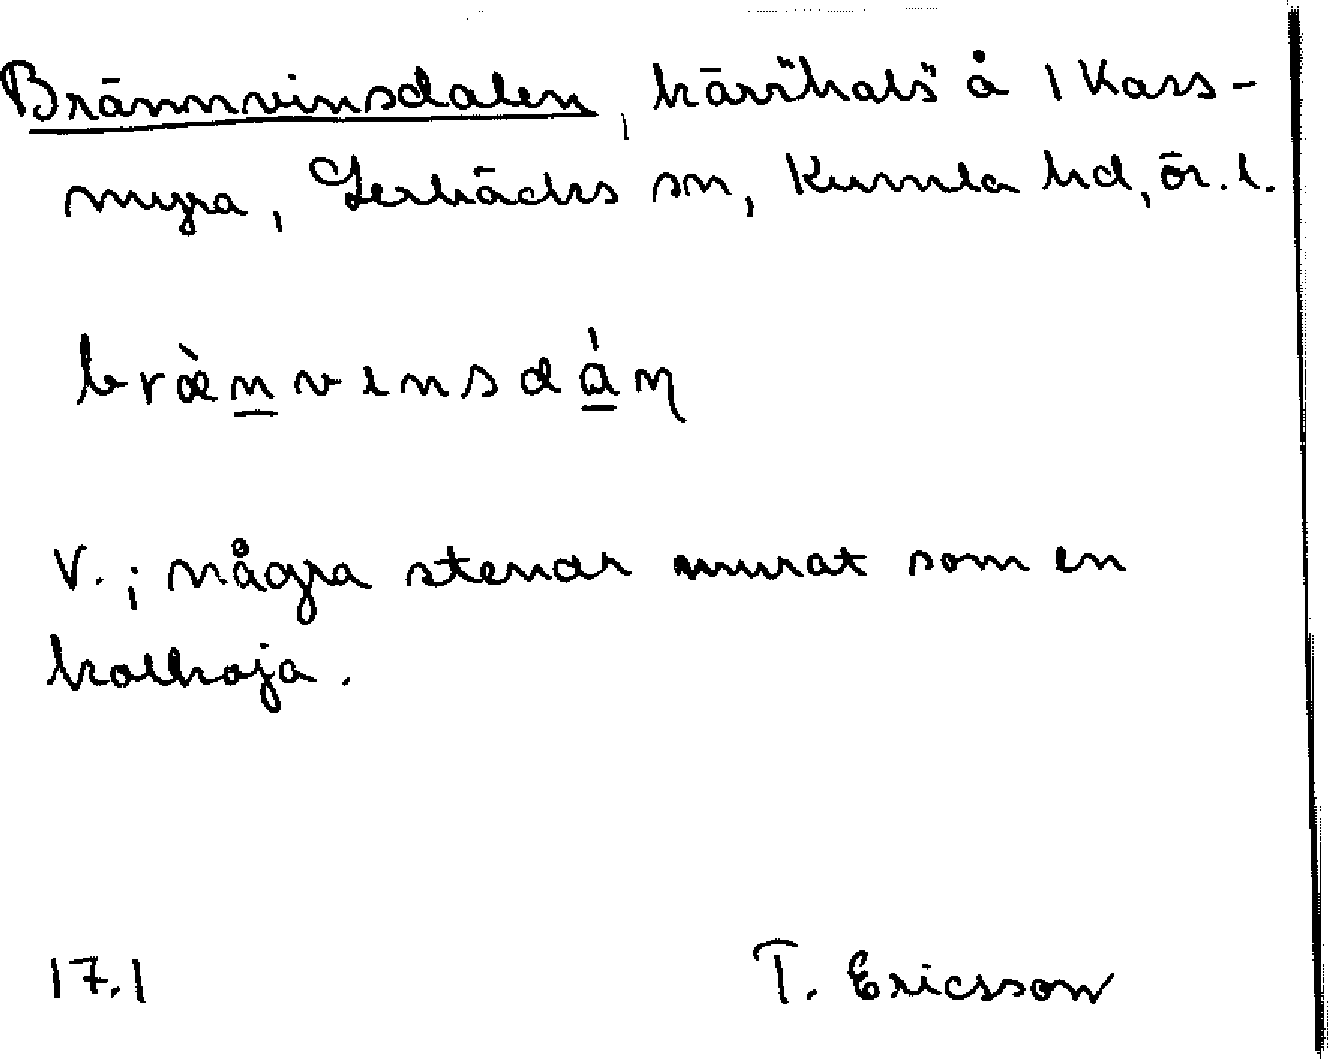 Brännvinsdalen, kärr"hals" å 1 Kass-
myra, Lerbäcks sn, Kumla hd, ör. l.
bræ̀n̲vɩnsdá̲ɳ
V.; några stenar murat som en
kolkoja.
17.1 T. Ericsson